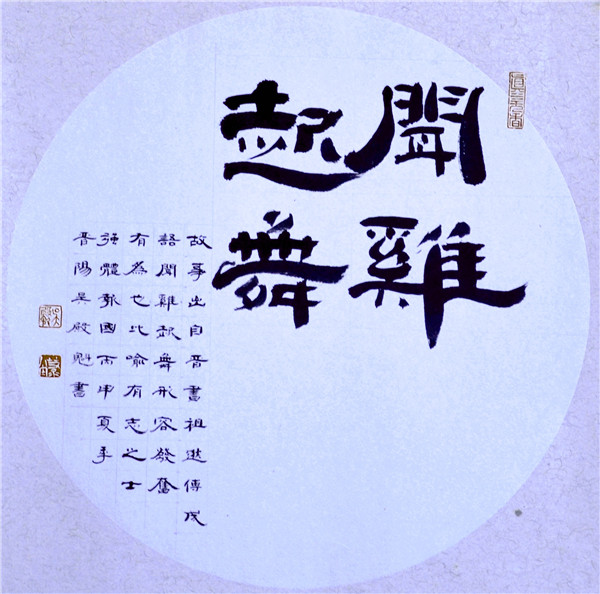 聞雞
起舞
故事出自晋書祖逖傳成
語聞雞起舞形容發奮
有為也比喻有志之士
强體報國丙申夏季
晋陽吴殿魁書